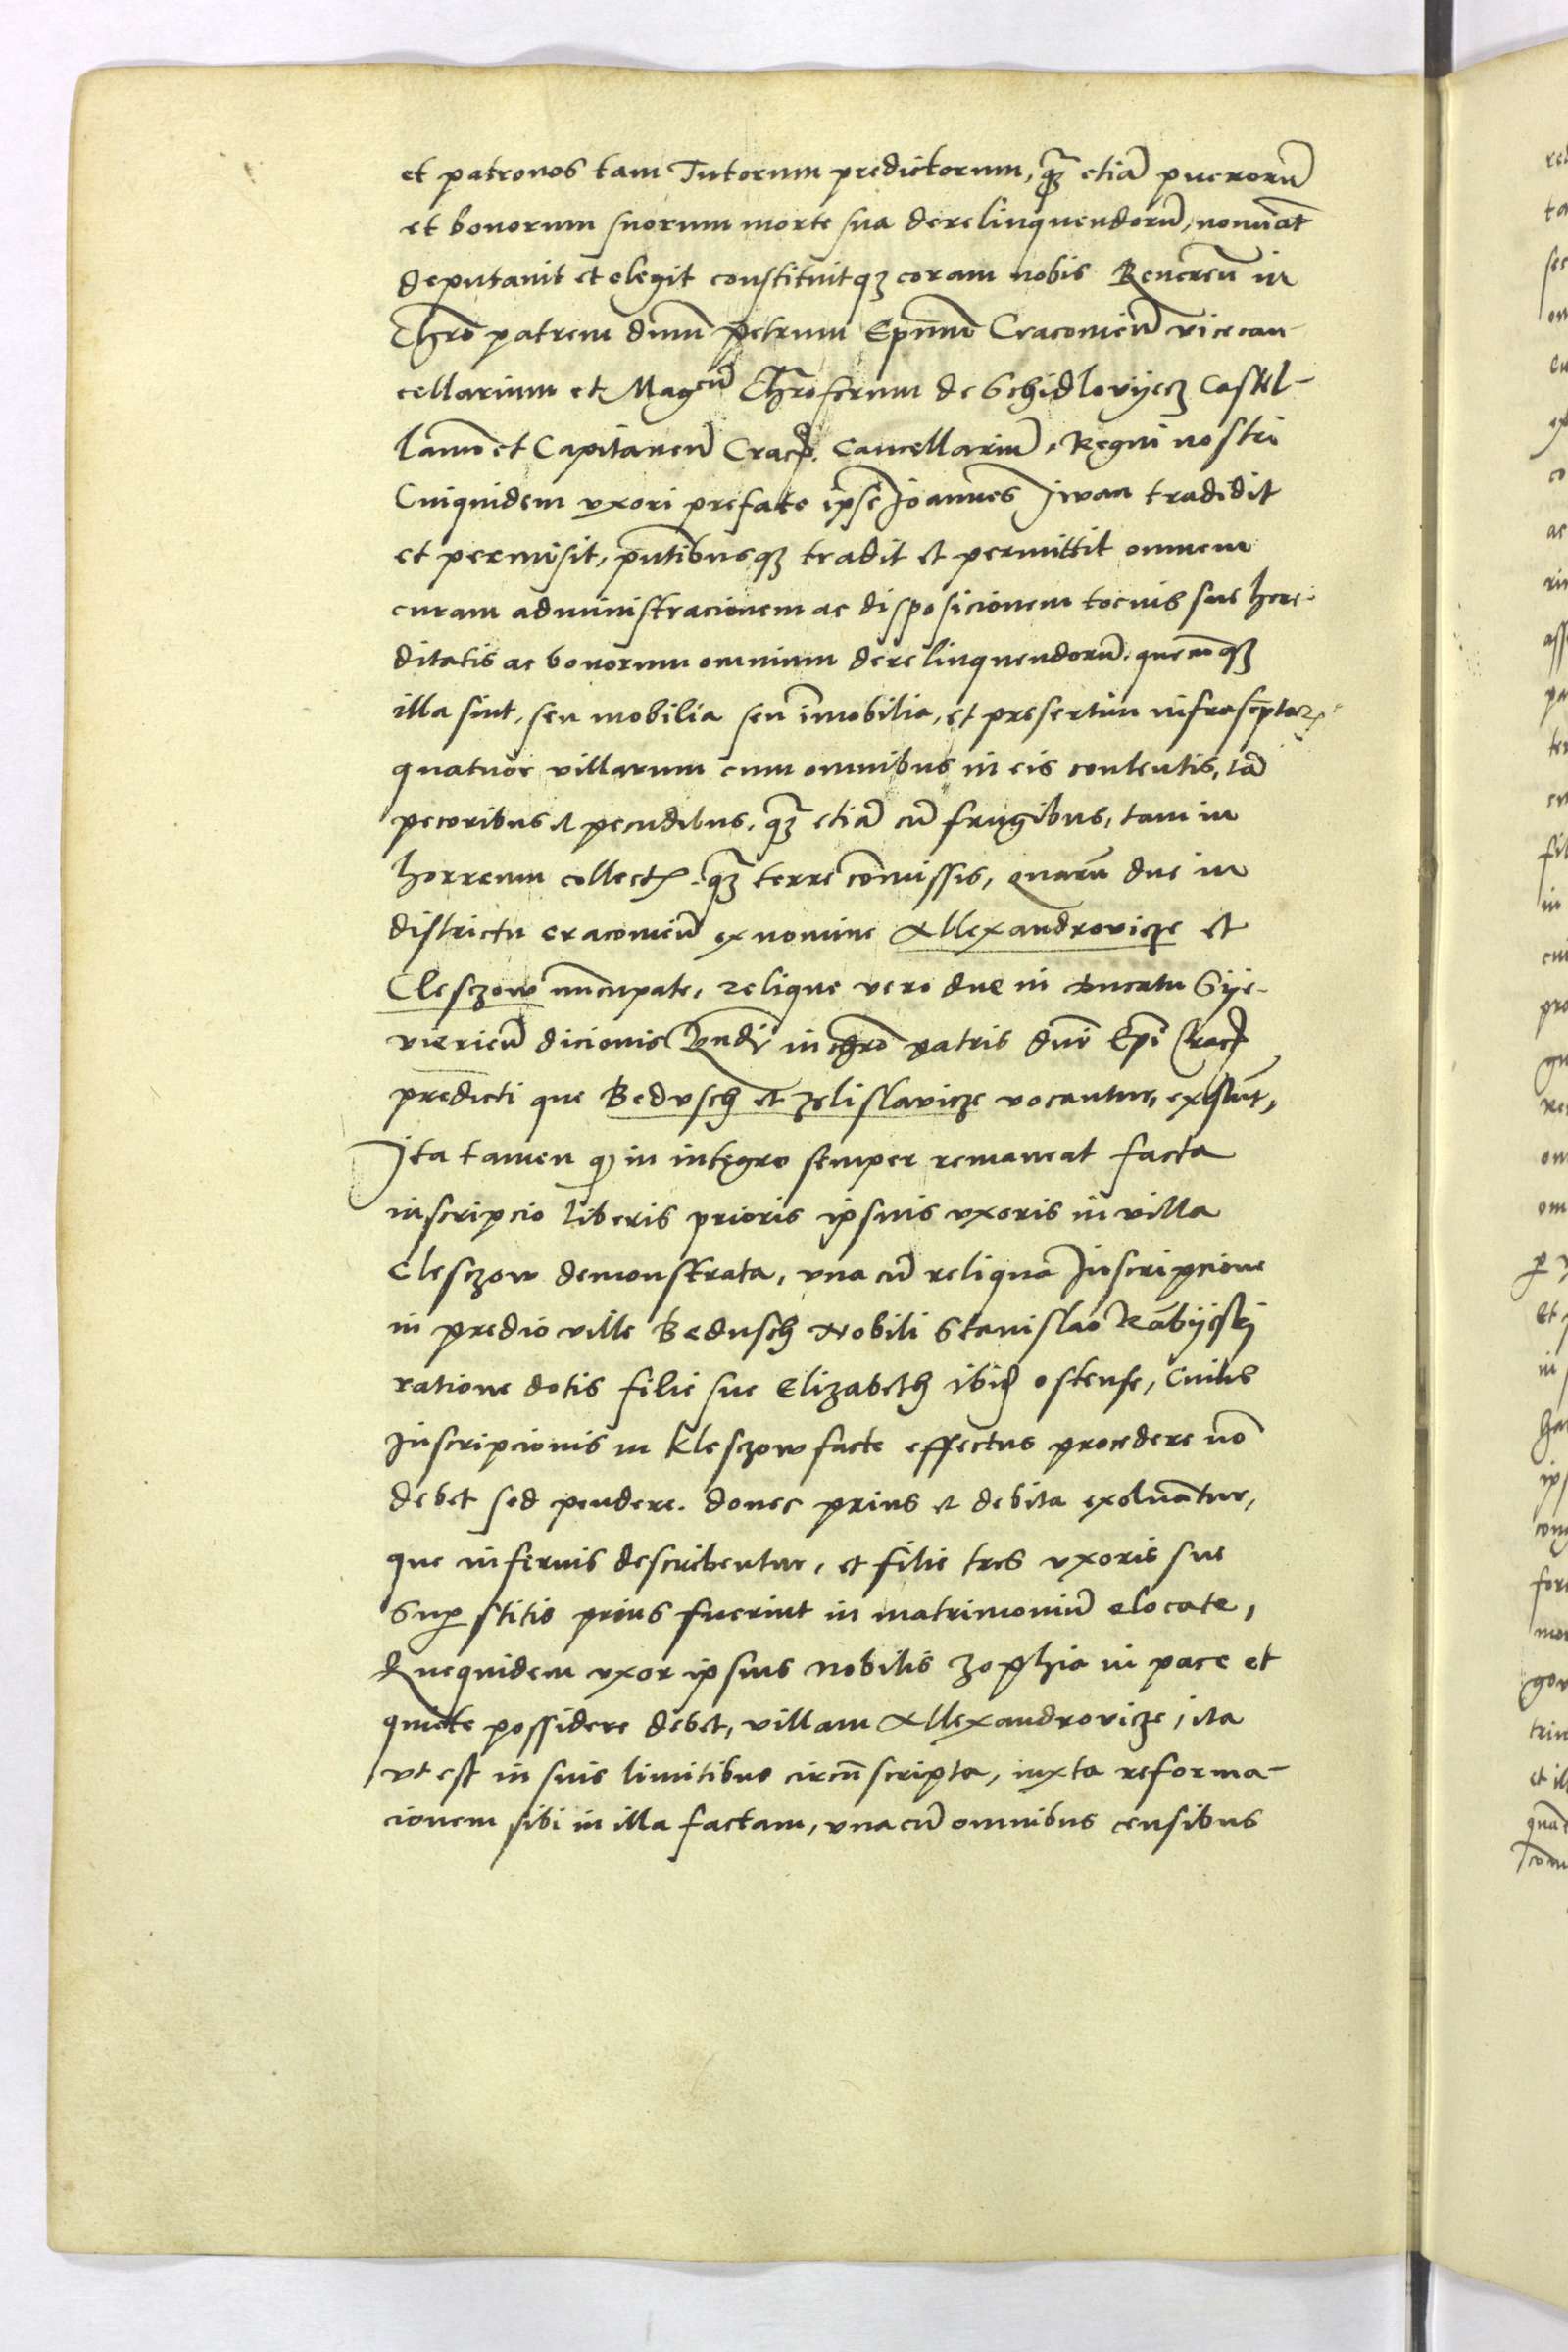 et patronos tam Tutorum predictorum, qz̃ etiã puerorũ
et bonorum suorum morte sua derelinquendorũ, nomiãt
deputauit et elegit constituitqz coram nobis Reuereñ in
Chrõ patrem dnum̃ Petrum Epum̃ Cracouieñ vicecan-
cellarium et Magcũ Chroferum de Schidlovijecz Castel-
lanũ et Capitaneũ Crac̃. Cancellariũ Regni nostri
Cuiquidem vxori prefate ipse Joannes Jwan tradidit
et permisit, pñtibusqz tradit et permittit omnem
curam administracionem ac disposicionem tocius sue here-
ditatis ac bonorum omnium derelinquendorũ, quecũqz
illa sint, seu mobilia seu im̃obilia, et presertim infrascpt̃aꝝ
quatuor villarum cum omnibus in eis contentis, tã
pecoribus et pecudibus, qz̃ etiã cũ frugibus, tam in
horreum collectꝭ qz̃ terre com̃issis, quarũ due in
districtu cracouieñ ex nomine Allexandrovicze et
Clesczow nũcupate, relique vero due in ducatu Sije-
vierieñ dicionis Rñdi in chrõ patris dnĩ Epĩ Crac̃
predicti que Bedvsch et Zelislavicze vocantur, existũt,
Ita tamen qꝫ in integro semper remaneat facta
inscripcio liberis prioris ipsius vxoris in villa
Clesczow demonstrata, vna cũ reliqua Inscripcione
in predio ville Bedusch Nobili Stanislao Rãbijeski
ratione dotis filie sue Elizabeth ibid̃ ostense, Cuius
Inscripcionis in Klesczow facte effectus procedere nõ
debet sed pendere. donec prius et debita exoluãtur,
que inferius describentur, et filie tres vxoris sue
Suꝑstitis prius fuerint in matrimoniũ elocate,
Quequidem vxor ipsius nobilis Zophia in pace et
quiete possidere debet, villam Allexandrovicze, ita
vt est in suis limitibus circũscripta, iuxta reforma-
cionem sibi in illa factam, vna cũ omnibus censibus